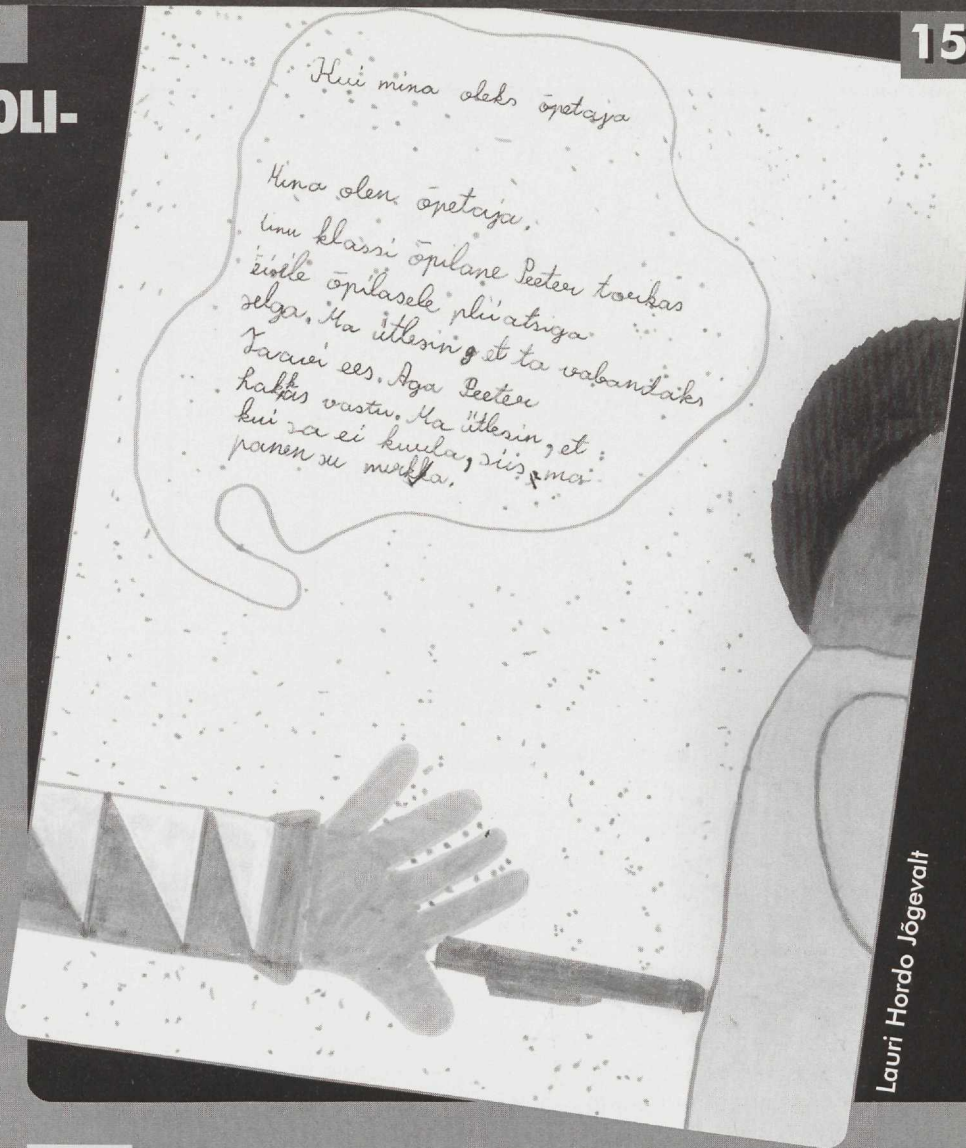 15
OLI-
Kui mina oleks õpetaja
Mina olen õpetaja.
Minu klassi õpilane Peeter torkas
eesile õpilasele pliiatsiga
selga. Ma ütlesin, et ta vabandaks
Taavi ees. Aga Peeter
hakkas vastu. Ma ütlesin, et
kui sa ei kuula, siis ma
panen su nurka.
Lauri Hordo Jõgevalt